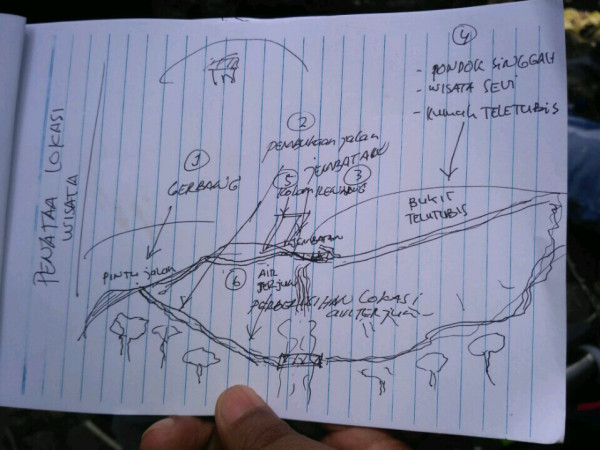 PENATAA LOKASI
WISATA
1
GERBANG
PINTU jalan
2
PEMBUKAAN jalan
JEMBATAN
3
5
KOLAM RENANG
JEMBATAN
4
- PONDOK SINGGAH
- WISATA SEVI
- RUMAH TELETUBIS
BUKIT
TELETUBIS
6
AIR
TERJUN
PEMBERSIHAN LOKASI
AIRTERJUN